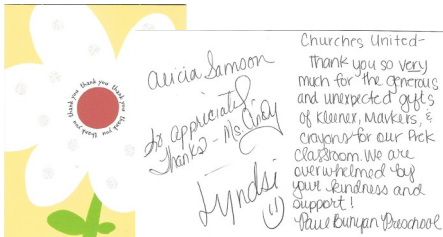 thank you thank you thank you thank you thank you thank you
Alicia Samson
So appreciated
Thanks - Ms. Cindy
Lyndsi
Churches United-
Thank you so very
much for the generous
and unexpected gifts
of Kleenex, Markers, &
crayons for our PreK
classroom. We are
overwhelmed by
your kindness and
support!
Paul Bunyan Preschool